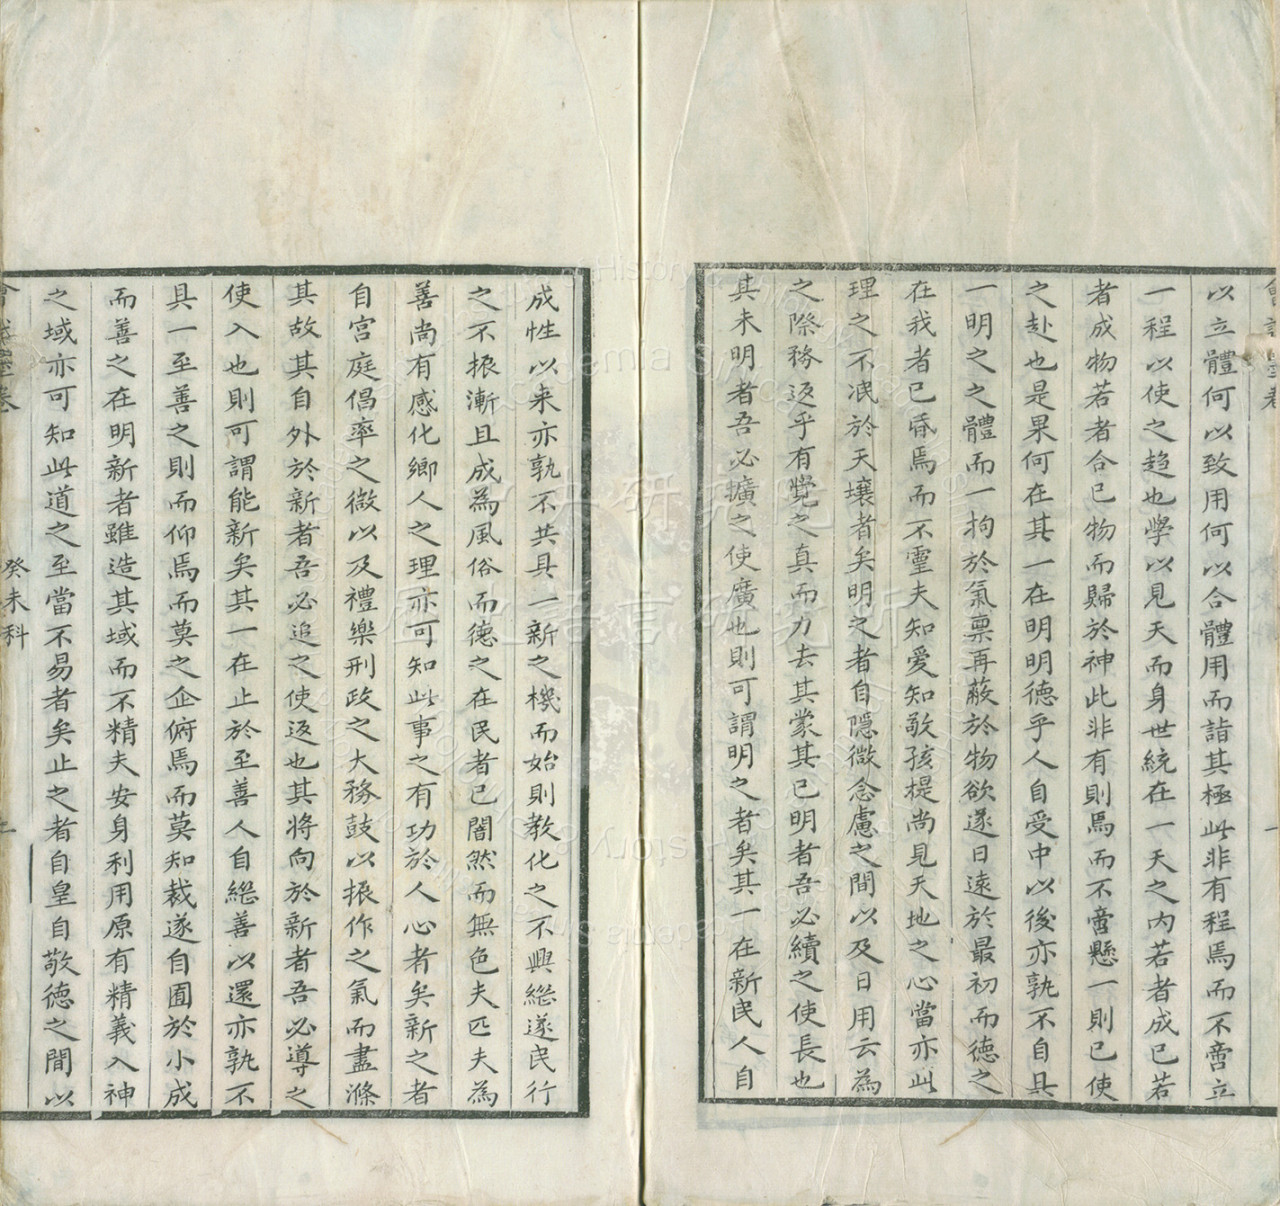 會試硃卷
以立體何以致用何以合體用而詣其極此非有程焉而不啻立
一程以使之趋也學以見天而身世統在一天之內若者成已若
者成物若者合已物而歸於神此非有則焉而不啻懸一則已使
之赴也是果何在其一在明明德乎人自受中以後亦孰不自具
一明之之體而一拘於氣稟再蔽於物欲遂日遠於最初而德之
在我者已昏焉而不靈夫知愛知敬孩提尚見天地之心當亦此
理之不泯於天壤者矣明之者自隱微念慮之間以及日用云為
之際務返乎有覺之真而力去其蒙其已明者吾必續之使長也
其未明者吾必擴之使廣也則可謂明之者矣其一在新民人自
成性以来亦孰不共具一新之機而始則教化之不興繼遂民行
之不振漸且成為風俗而德之在民者已闇然而無色夫匹夫為
善尚有感化鄉人之理亦可知此事之有功於人心者矣新之者
自宮庭倡率之微以及禮樂刑政之大務鼓以振作之氣而盡滌
其故其自外於新者吾必追之使返也其將向於新者吾必導之
使入也則可謂能新矣其一在止於至善人自繼善以還亦孰不
具一至善之則而仰焉而莫之企俯焉而莫知裁遂自囿於小成
而善之在明新者雖造其域而不精夫安身利用原有精義入神
之域亦可知此道之至當不易者矣止之者自皇自敬德之間以
會試硃卷
癸未科